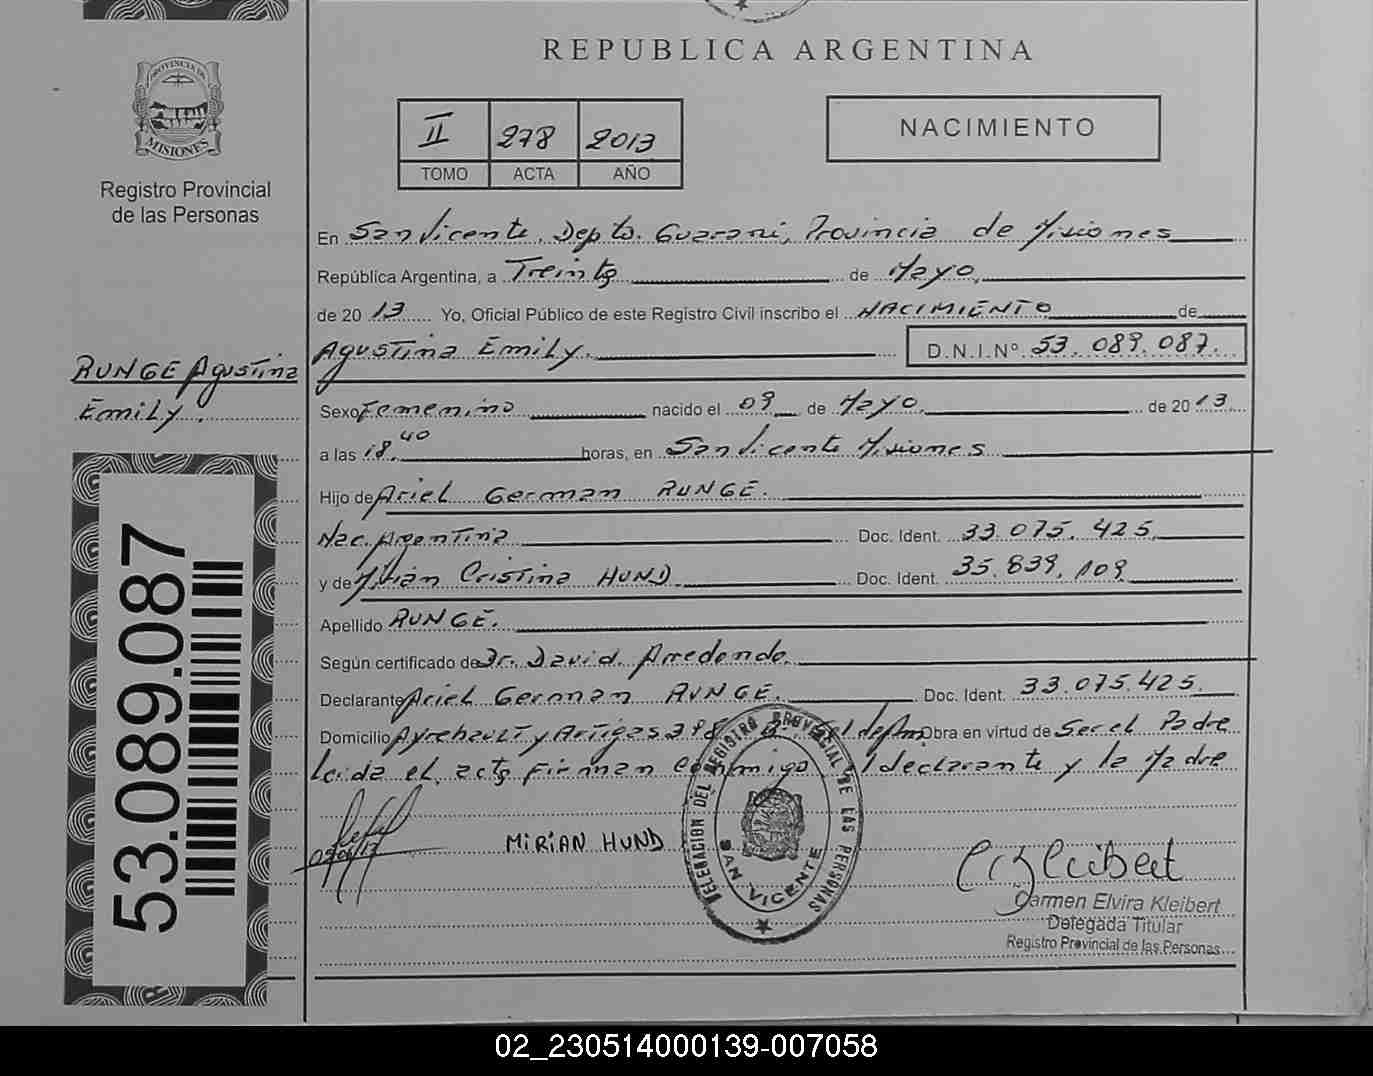 REPUBLICA ARGENTINA
PROVINCIA DE
MISIONES
Registro Provincial
de las Personas
II 278 2013
TOMO ACTA AÑO
NACIMIENTO
En San Vicente, Depto. Guarani, Provincia de Misiones
República Argentina, a Treinta de Mayo
de 2013 Yo, Oficial Público de este Registro Civil inscribo el NACIMIENTO de
Agustina Emily. D.N.I.Nº 53.089.087.
RUNGE Agustina
Emily.
Sexo Femenino nacido el 09 de Mayo de 2013
a las 18,40 horas, en San Vicente Misiones
Hijo de Ariel German RUNGE.
Nac. Argentina Doc. Ident. 33.075.425
y de Cristina HUND Doc. Ident. 35.839.109
Apellido RUNGE.
Según certificado de Dr. David Arredondo
Declarante Ariel German RUNGE. Doc. Ident. 33.075.425
Domicilio y Artigas Obra en virtud de Ser el Padre
Leida el acta Firman Conmigo declarante y la Madre
53.089.087
MIRIAN HUND
DELEGACION DEL REGISTRO PROVINCIAL DE LAS PERSONAS
SAN VICENTE
Kleibert
Carmen Elvira Kleibert
Delegada Titular
Registro Provincial de las Personas
02_230514000139-007058